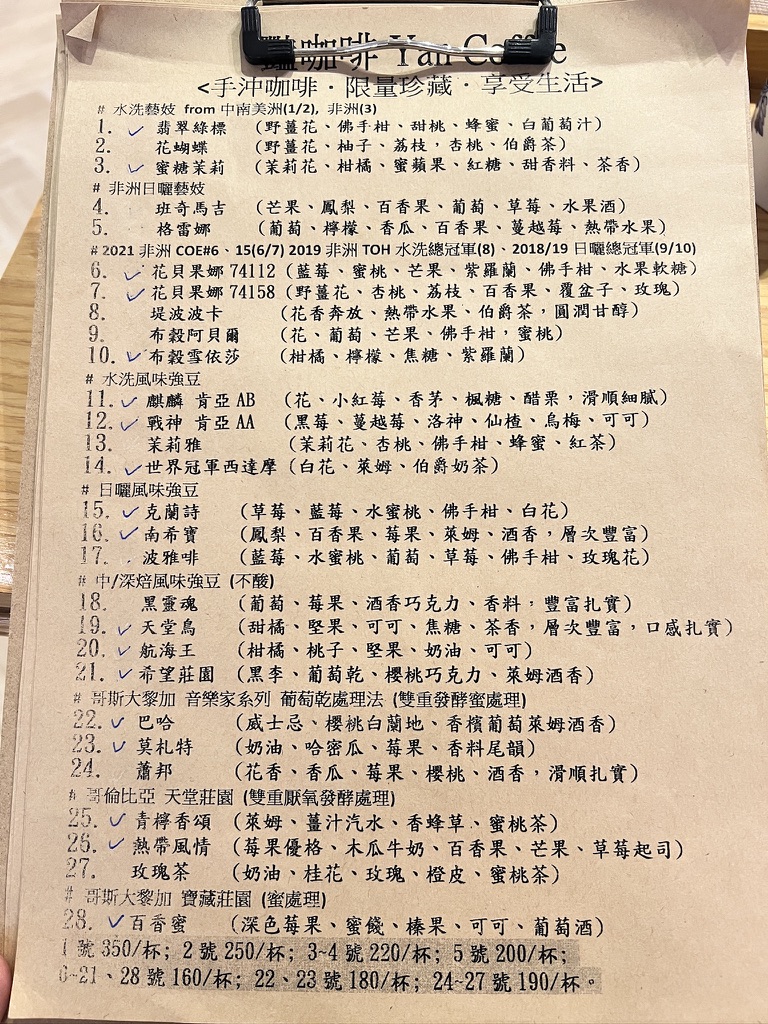 艷咖啡 Yan Coffee
<手沖咖啡·限量珍藏·享受生活>
# 水洗藝妓 from 中南美洲(1/2), 非洲(3)
1. ✓ 翡翠綠標 (野薑花、佛手柑、甜桃、蜂蜜、白葡萄汁)
2. 花蝴蝶 (野薑花、柚子、荔枝,杏桃、伯爵茶)
3. ✓ 蜜糖茉莉 (茉莉花、柑橘、蜜蘋果、紅糖、甜香料、茶香)
# 非洲日曬藝妓
4. 班奇馬吉 (芒果、鳳梨、百香果、葡萄、草莓、水果酒)
5. 格雷娜 (葡萄、檸檬、香瓜、百香果、蔓越莓、熱帶水果)
# 2021 非洲 COE#6、15(6/7) 2019 非洲 TOH 水洗總冠軍(8)、2018/19 日曬總冠軍(9/10)
6. ✓ 花貝果娜 74112 (藍莓、蜜桃、芒果、紫羅蘭、佛手柑、水果軟糖)
7. ✓ 花貝果娜 74158 (野薑花、杏桃、荔枝、百香果、覆盆子、玫瑰)
8. 堤波波卡 (花香奔放、熱帶水果、伯爵茶,圓潤甘醇)
9. 布穀阿貝爾 (花、葡萄、芒果、佛手柑,蜜桃)
10. ✓ 布穀雪依莎 (柑橘、檸檬、焦糖、紫羅蘭)
# 水洗風味強豆
11. ✓ 麒麟 肯亞 AB (花、小紅莓、香茅、楓糖、醋栗,滑順細膩)
12. ✓ 戰神 肯亞 AA (黑莓、蔓越莓、洛神、仙楂、烏梅、可可)
13. 茉莉雅 (茉莉花、杏桃、佛手柑、蜂蜜、紅茶)
14. ✓ 世界冠軍西達摩 (白花、萊姆、伯爵奶茶)
# 日曬風味強豆
15. ✓ 克蘭詩 (草莓、藍莓、水蜜桃、佛手柑、白花)
16. ✓ 南希寶 (鳳梨、百香果、莓果、萊姆、酒香,層次豐富)
17. 波雅啡 (藍莓、水蜜桃、葡萄、草莓、佛手柑、玫瑰花)
# 中/深焙風味強豆 (不酸)
18. 黑靈魂 (葡萄、莓果、酒香巧克力、香料,豐富扎實)
19. ✓ 天堂鳥 (甜橘、堅果、可可、焦糖、茶香,層次豐富,口感扎實)
20. ✓ 航海王 (柑橘、桃子、堅果、奶油、可可)
21. ✓ 希望莊園 (黑李、葡萄乾、櫻桃巧克力、萊姆酒香)
# 哥斯大黎加 音樂家系列 葡萄乾處理法 (雙重發酵蜜處理)
22. ✓ 巴哈 (威士忌、櫻桃白蘭地、香檳葡萄萊姆酒香)
23. ✓ 莫札特 (奶油、哈密瓜、莓果、香料尾韻)
24. 蕭邦 (花香、香瓜、莓果、櫻桃、酒香,滑順扎實)
# 哥倫比亞 天堂莊園 (雙重厭氧發酵處理)
25. ✓ 青檸香頌 (萊姆、薑汁汽水、香蜂草、蜜桃茶)
26. ✓ 熱帶風情 (莓果優格、木瓜牛奶、百香果、芒果、草莓起司)
27. 玫瑰茶 (奶油、桂花、玫瑰、橙皮、蜜桃茶)
# 哥斯大黎加 寶藏莊園 (蜜處理)
28. ✓ 百香蜜 (深色莓果、蜜餞、榛果、可可、葡萄酒)
1 號 350/杯; 2 號 250/杯; 3~4 號 220/杯; 5 號 200/杯;
6~21、28 號 160/杯; 22、23 號 180/杯; 24~27 號 190/杯。